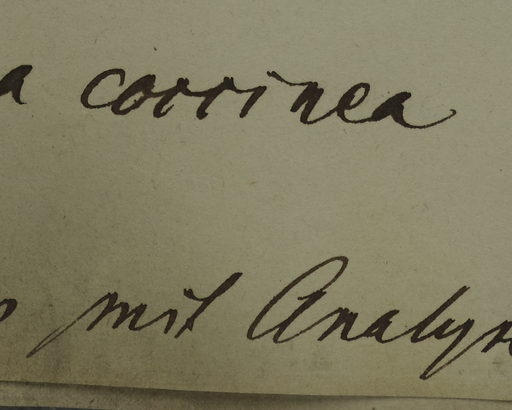 a coccinea
mit Analys